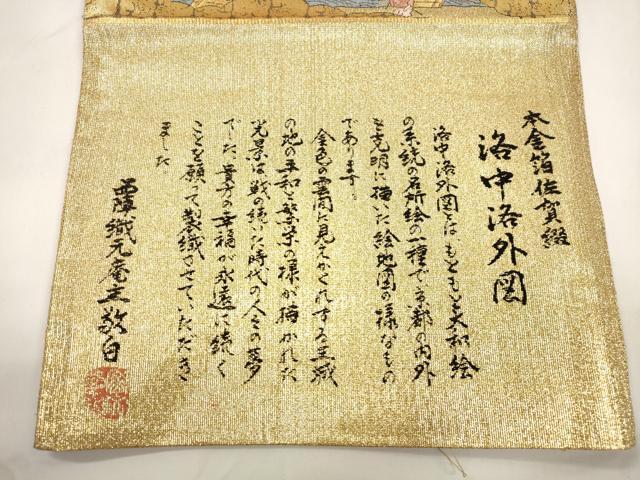 本金箔佐賀綴
洛中洛外図
洛中洛外図とはもともと大和絵
の系統の名所絵の一種で京都の内外
を克明に描いた絵地図の様なもの
であります。
金色の雲間に見えかくれする王城
の地の平和と繁栄の様が描かれた
光景は戦の続いた時代の人々の夢
でした貴方の幸福が永遠に続く
ことを願って製織させていただき
ました
西陣織元庵主敬白